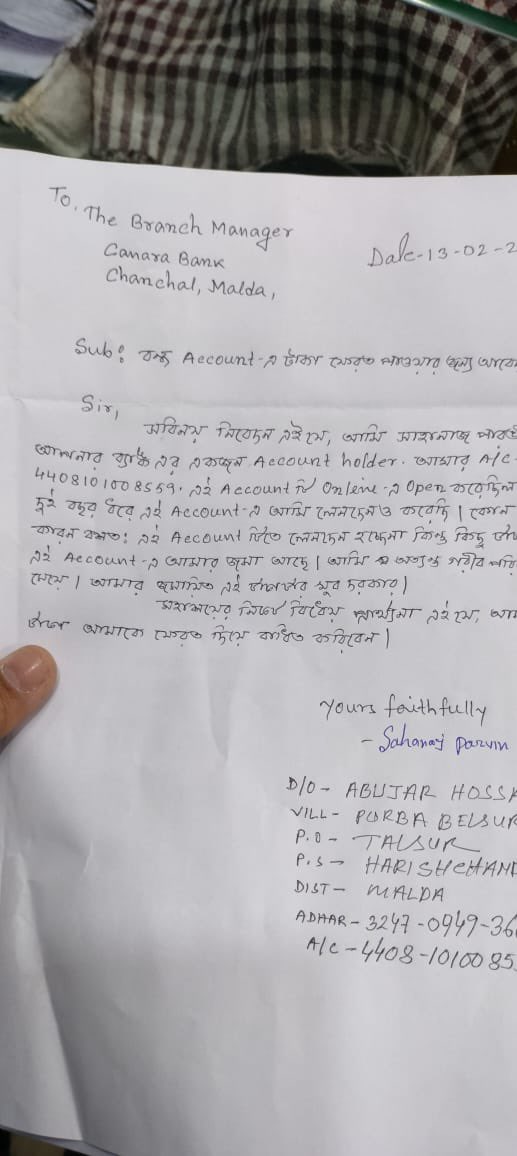 To,
The Branch Manager
Canara Bank
Chanchal, Malda,
Date-13-02-2
Sub: বন্ধ Account-এ টাকা ফেরত পাওয়ার জন্য আবে
Sir,
সবিনয় নিবেদন এই যে, আমি সাহানাজ পারভ
আপনার ব্যাঙ্ক এর একজন Account holder. আমার A/C-
44081010085 59. এই Account টি Online-এ Open করেছিল
দুই বছর ধরে এই Account-এ আমি লেনদেনও করেছি। কোন
কারন বশত: এই Account টিতে লেনদেন হচ্ছেনা কিন্তু কিছু টাকা
এই Account-এ আমার জমা আছে। আমি অত্যন্ত গরীব পরি
মেয়ে। আমার জমায়িত এই টাকার খুব দরকার।
মহাশয়ের নিকট বিধেয় প্রার্থনা এই যে, আম
টাকা আমাকে ফেরত দিয়ে বাধিত করিবেন।
Yours faithfully
- Sahanaj Parvin
D/O- ABUJAR HOSSA
VILL- PURBA BELSUR
P.O- TALSUR
P.S- HARISHCHAND
DIST- MALDA
ADHAR-3247-0949-36
A/C-4408-10100 85